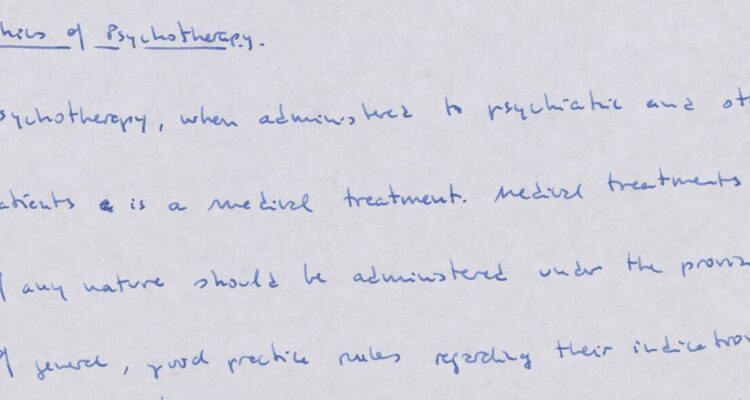 hics of Psychotherapy.
sychotherapy, when administered to psychiatric and oth
atients is a medical treatment. Medical treatments
f any nature should be administered under the provis
of general, good practice rules regarding their indication